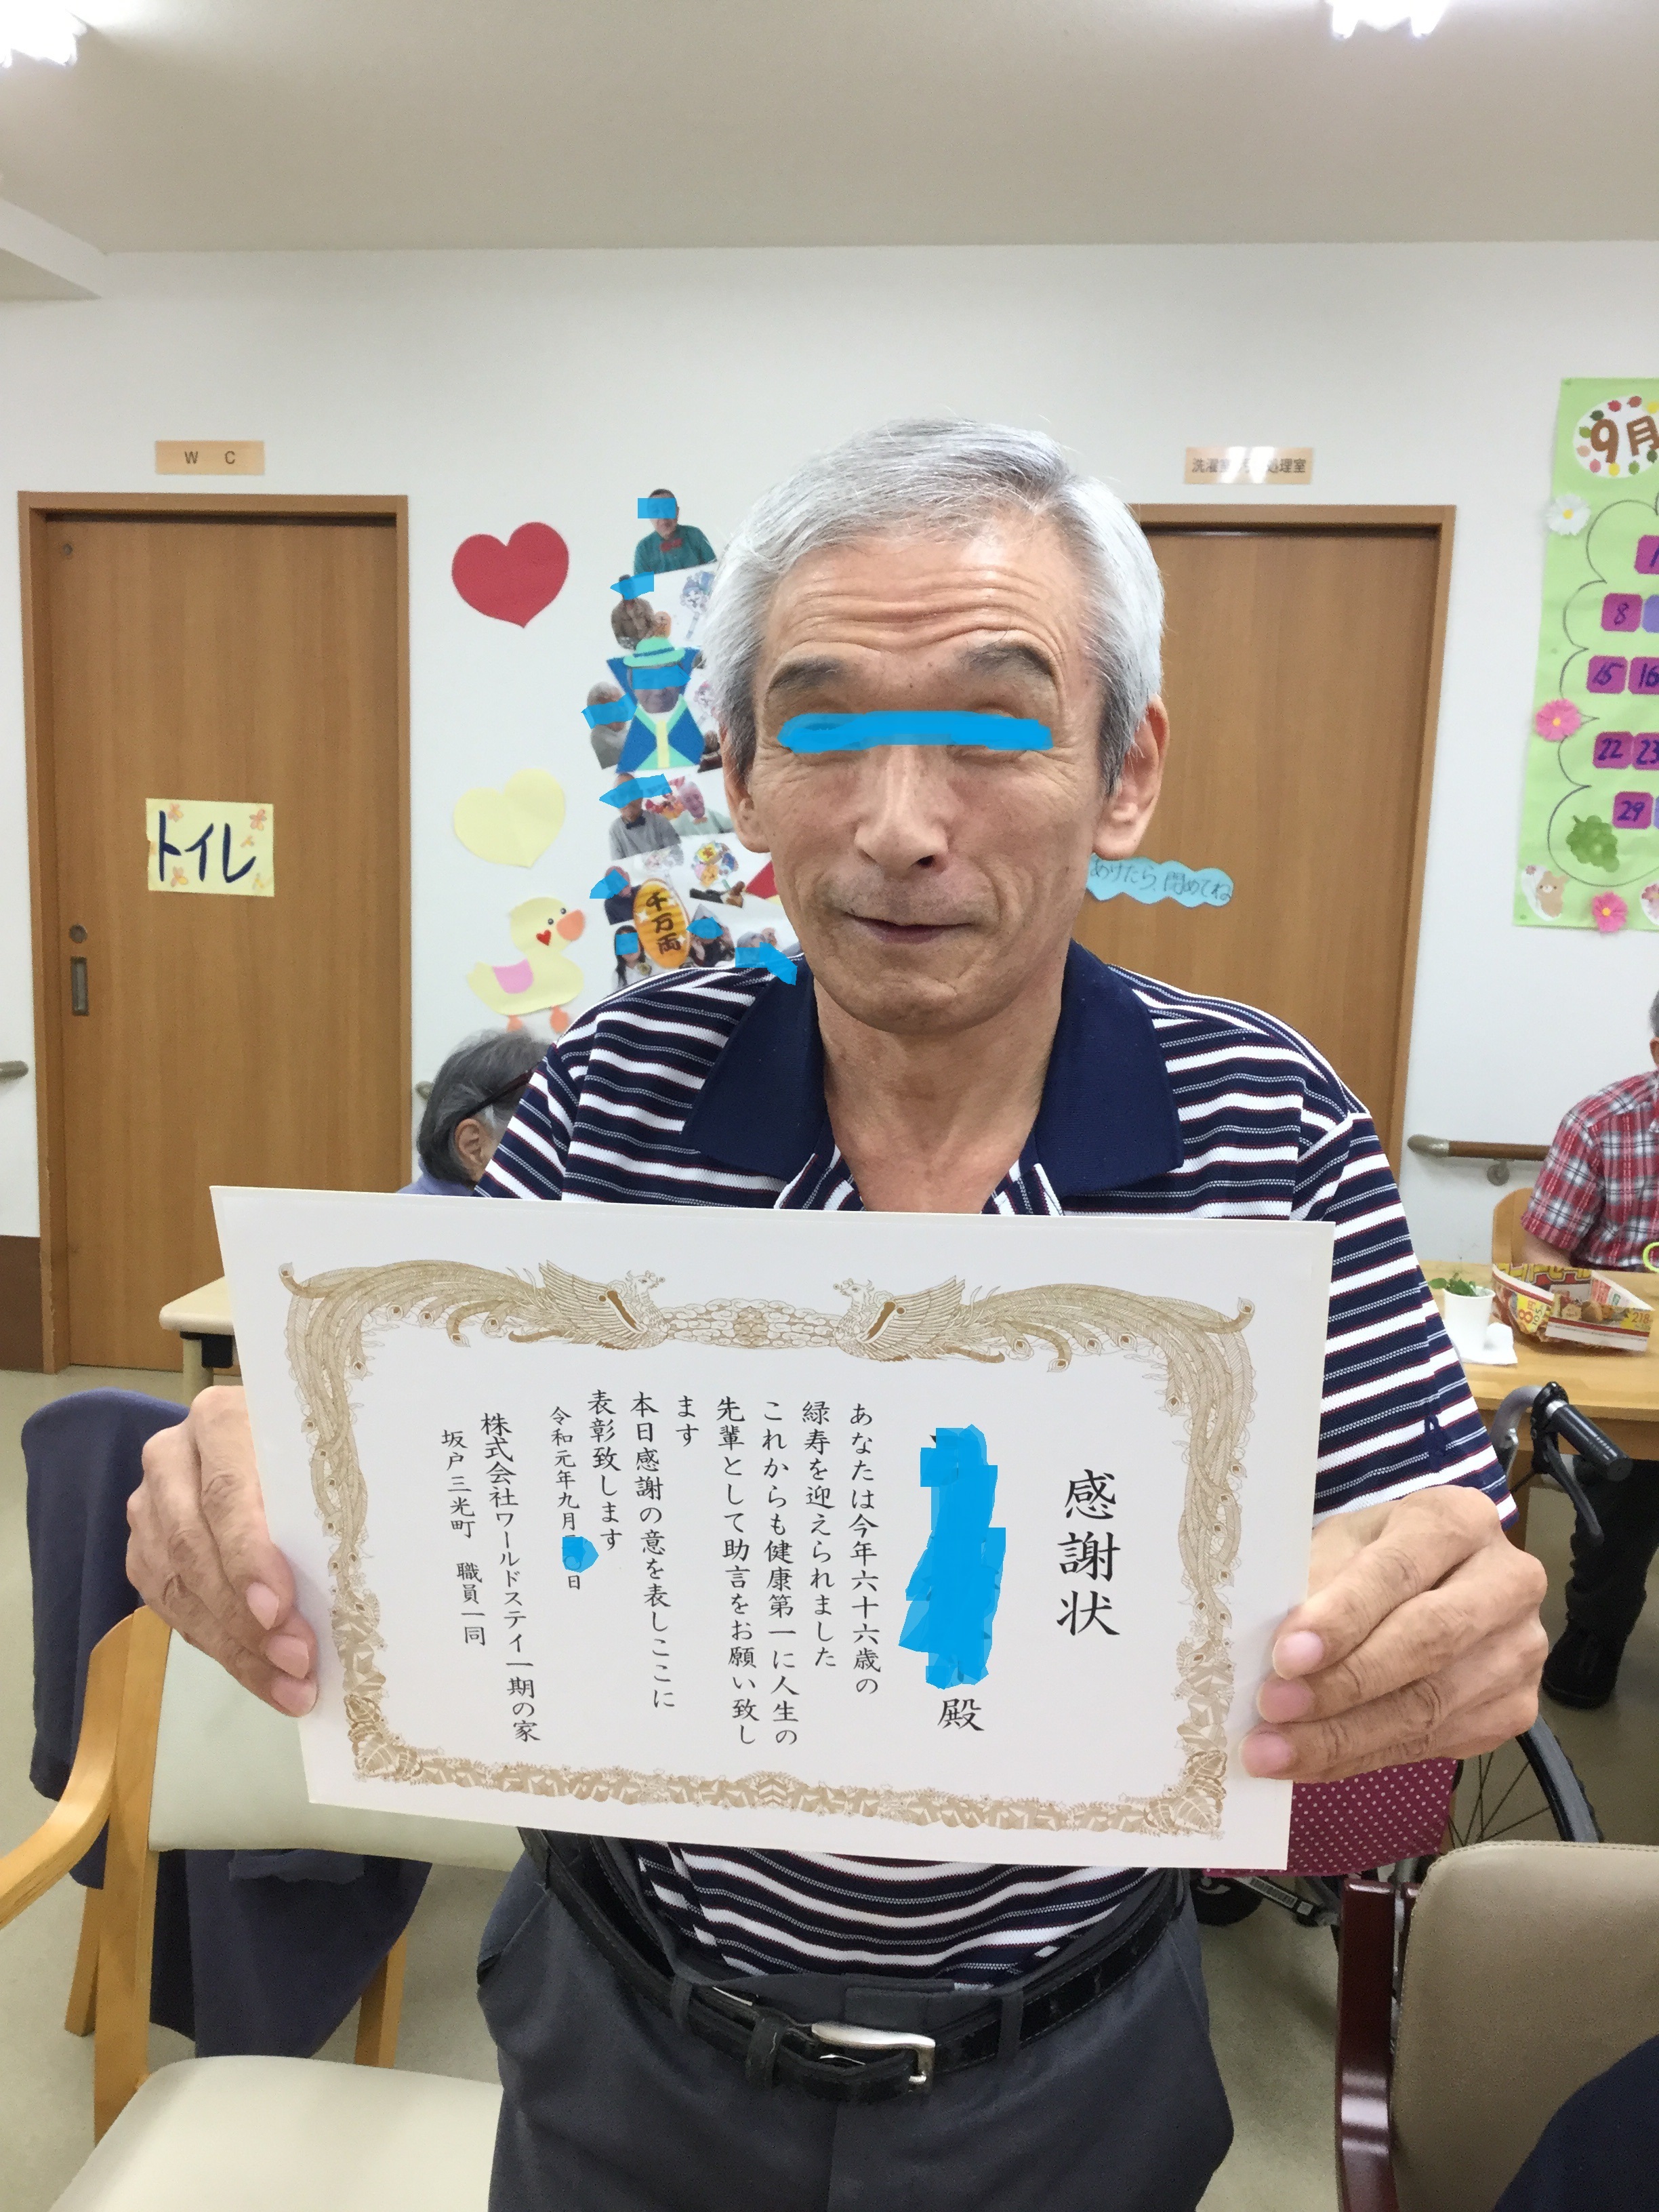 W C
トイレ
千万両
洗濯
処理室
あけたら、閉めてね
9月
1
8
15 16
22 23
29
218
感謝状
殿
あなたは今年六十六歳の
緑寿を迎えられました
これからも健康第一に人生の
先輩として助言をお願い致し
ます
本日感謝の意を表しここに
表彰致します
令和元年九月
日
株式会社ワールドステイ一期の家
坂戸三光町 職員一同